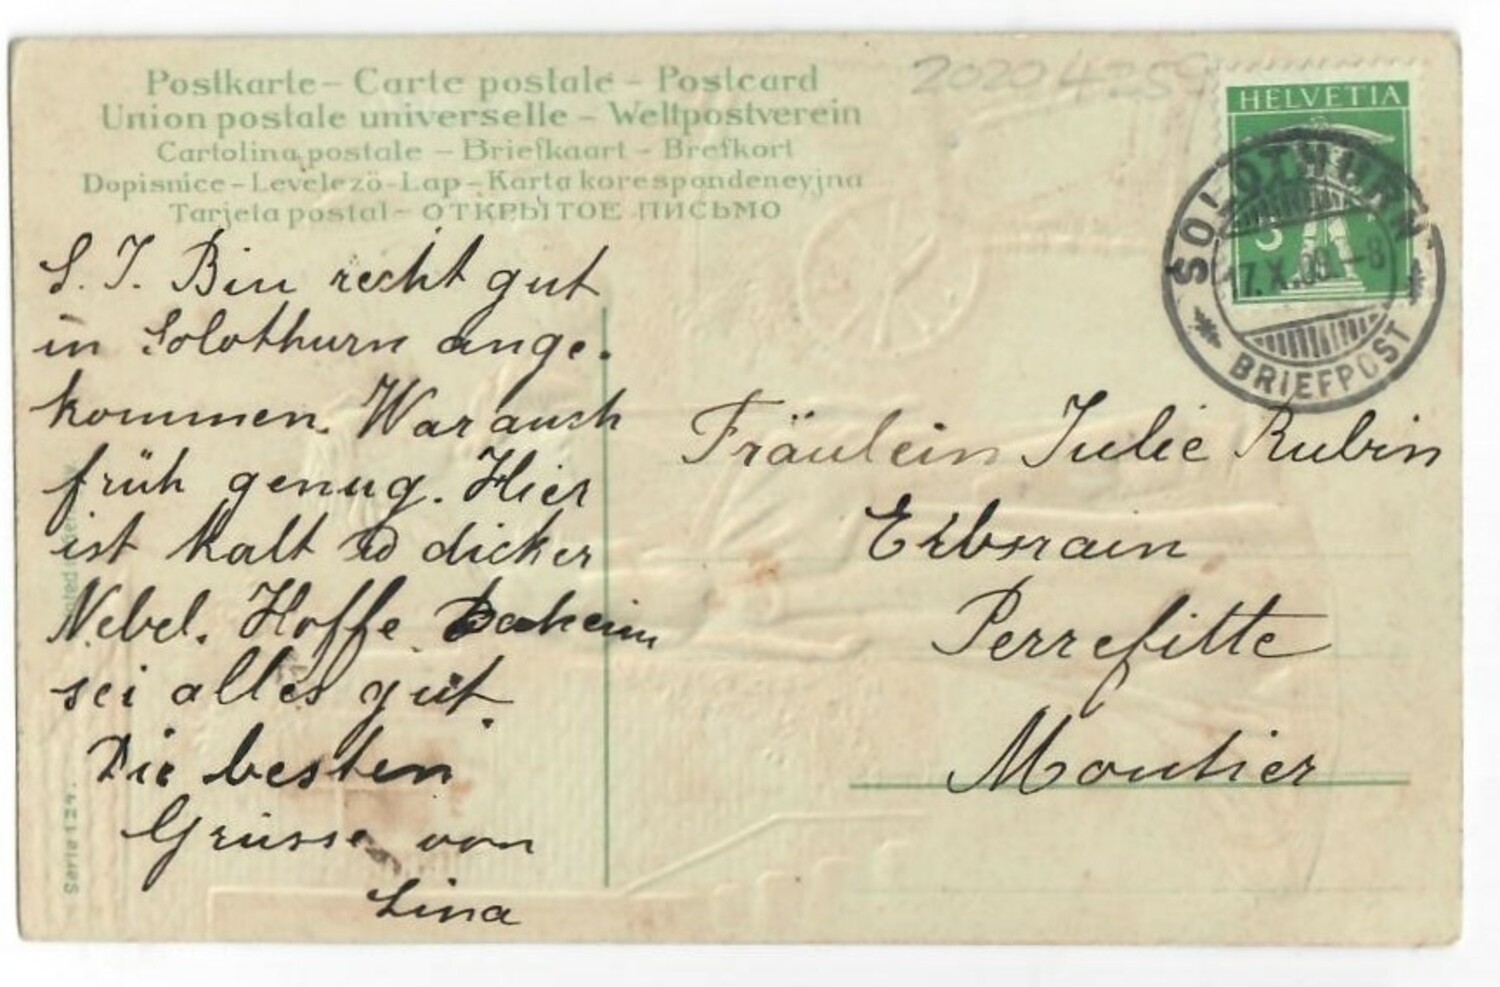 Postkarte – Carte postale – Postcard
Union postale universelle – Weltpostverein
Cartolina postale – Briefkaart – Brefkort
Dopisnice – Levelező-Lap – Karta korespondencyjna
Tarjeta postal – ОТКРЫТОЕ ПИСЬМО
20204259
HELVETIA
5
SOLOTHURN
17.X.09.–8
BRIEFPOST
L. J. Bin recht gut
in Solothurn ange-
kommen. War auch
früh genug. Hier
ist kalt u dicker
Nebel. Hoffe Daheim
sei alles gut.
Die besten
Grüsse von
Lina
Fräulein Julie Rubin
Erbsrain
Perrefitte
Moutier
Serie 124.